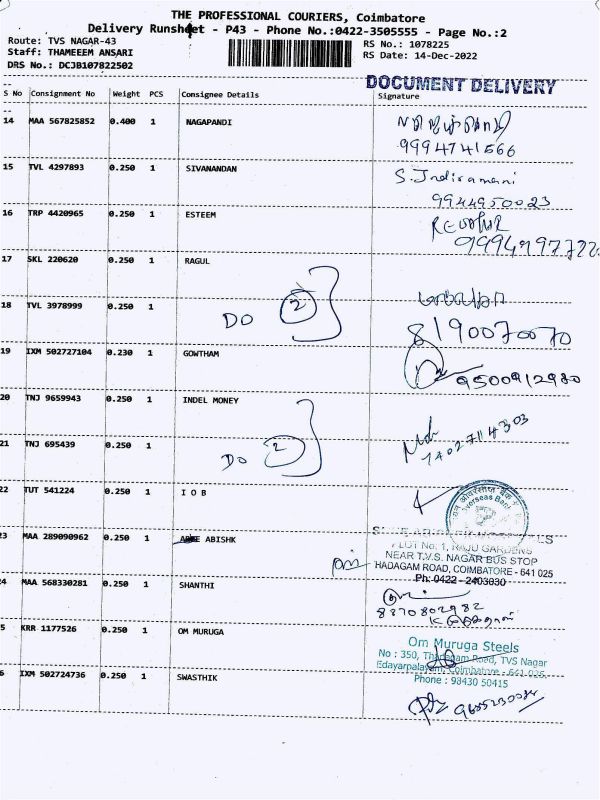 THE PROFESSIONAL COURIERS, Coimbatore
Delivery Runsheet - P43 - Phone No.:0422-3505555 - Page No.:2
Route: TVS NAGAR-43
RS No.: 1078225
Staff: THAMEEEM ANSARI
RS Date: 14-Dec-2022
DRS No.: DCJB107822502
DOCUMENT DELIVERY
S No Consignment No Weight PCS Consignee Details Signature
14 MAA 567825852 0.400 1 NAGAPANDI
9994741566
15 TVL 4297893 0.250 1 SIVANANDAN S. Indiramani
9944950023
16 TRP 4420965 0.250 1 ESTEEM
17 SKL 220620 0.250 1 RAGUL
18 TVL 3978999 0.250 1
DO 2
8190070070
19 IXM 502727104 0.230 1 GOWTHAM
9500912980
20 TNJ 9659943 0.250 1 INDEL MONEY
21 TNJ 695439 0.250 1
DO 2
22 TUT 541224 0.250 1 I O B
23 MAA 289090962 0.250 1 ABISHK
PLOT No. 1, RAJU GARDENS
NEAR T.V.S. NAGAR BUS STOP
HADAGAM ROAD, COIMBATORE - 641 025
Ph: 0422 - 2403030
24 MAA 568330281 0.250 1 SHANTHI
8870802982
5 KRR 1177526 0.250 1 OM MURUGA
Om Muruga Steels
No : 350, Thadagam Road, TVS Nagar
Edayarpalayam, Coimbatore - 641 025
Phone : 98430 50415
6 IXM 502724736 0.250 1 SWASTHIK